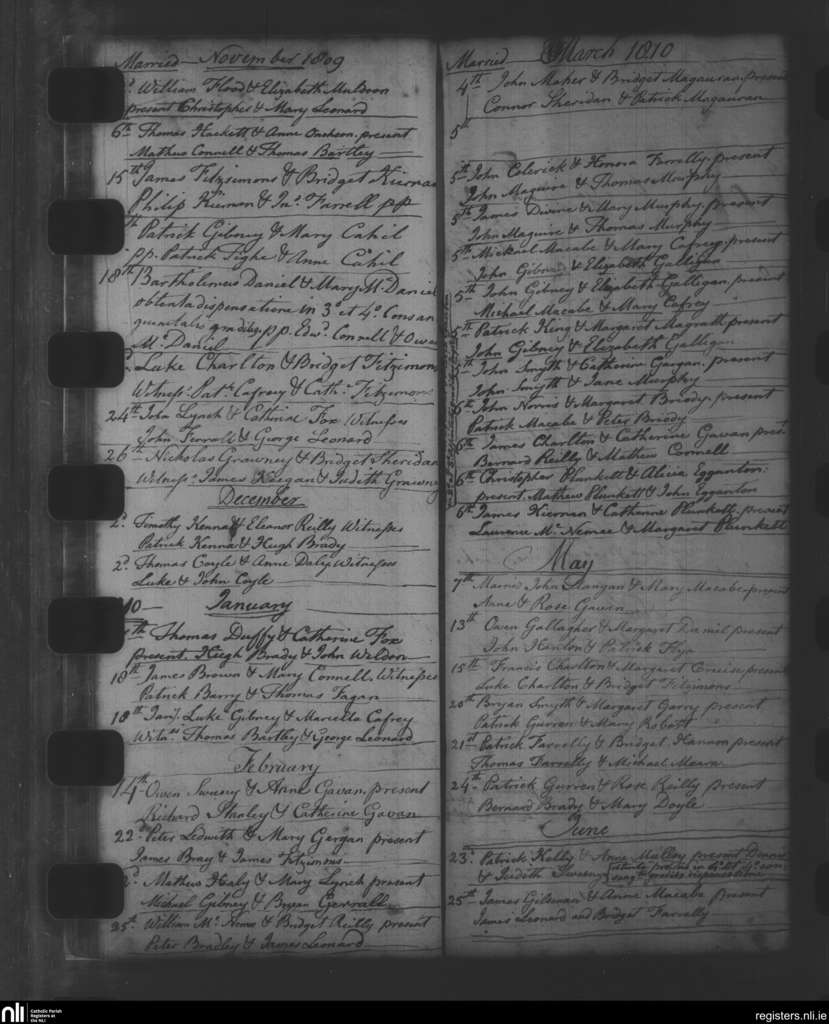 Married - November 1809
William Flood & Elizabeth Muldoon
present Christopher & Mary Leonard
6th Thomas Hackett & Anne present
Mathew Connell & Thomas Bartley
15th James Fitzsimons & Bridget Kiernan
Philip Kiernon & Jno. Farrell pp
th Patrick Gibney & Mary Cahil
pp. Patrick Tighe & Anne Cahil
18th Bartholemew Daniel & Mary Mc. Daniel
obtenta dispensatione in 3o et 4o. Consan
guinitatis gradibus pp. Edwd. Connell & Owen
Mc. Daniel
Luke Charlton & Bridget Fitzimons
Witness. Patk. Cafrey & Cath. Fitzimons
24th John Lynch & Cathrine Fox Witnesses
John Ferroll & George Leonard
26th Nickolas Grawney & Bridget Sheridan
Witness. James Keegan & Judith Grawny
December
2d. Timothy Kenna & Eleanor Reilly Witnesses
Patrick Kenna & Hugh Brady
2d. Thomas Coyle & Anne Daly Witnesses
Luke & John Coyle
10 - January
th Thomas Duffy & Catherine Fox
present. Hugh Brady & John Weldon
18th James Brown & Mary Connell, Witnesses
Patrick Berry & Thomas Fagan
18th Jany. Luke Gibney & Mariella Cafrey
Witns. Thomas Bartley & George Leonard
February
14th Owen Sweeny & Anne Gavan, present
Richard Stanley & Catherine Gavan
22d Peter Ledwith & Mary Gargan present
James Bray & James Fitzimons
d. Mathew Haly & Mary Lynch present
Michael Gibney & Bryan Gerrall
25th William Mc. & Bridget Reilly present
Peter Bradley & James Leonard
Married March 1810
4th John Maher & Bridget Magauran, present
Connor Sheridan & Patrick Magauran
5th
5th John Clerick & Honora Farrelly, present
John Maguire & Thomas Murphy
5th James Divine & Mary Murphy, present
John Maguire & Thomas Murphy
5th Michael Macabe & Mary Cafrey, present
John Gibney & Elizabeth Galligan
5th John Gibney & Elizabeth Galligan, present
Michael Macabe & Mary Cafrey
5th Patrick King & Margaret Magrath present
John Gibney & Elizabeth Galligan
5th John Smyth & Catherine Gargan, present
John Smyth & Jane Murphy
6th John Norris & Margaret Briody, present
Patrick Macabe & Peter Briody
6th James Charlton & Catherine Gawan pres.
Bernard Reilly & Mathew Connell
6th Christopher Plunkett & Alicia Egganton:
present. Mathew Plunkett & John Egganton
6th James Kiernan & Catherine Plunkett, present
Laurence Mc. Namee & Margaret Plunkett
May
7th Married John Flanygan & Mary Macabe present
Anne & Rose Gawen
13th Owen Gallagher & Margaret Daniel present
John Hanlon & Patrick
15th Francis Charlton & Margaret Cruise, present
Luke Charlton & Bridget Fitzimons
20th Bryan Smyth & Margaret Garry present
Patrick Gurren & Mary Robott
21st Patrick Farrelly & Bridget Hannon present
Thomas Darrelly & Michael Meara
24th Patrick Gurren & Rose Reilly present
Bernard Brady & Mary Doyle
June
23d. Patrick Kelly & Anne Mulloy present Dennis
& Judith Sweeny
25th James Gilsenan & Anne Macabe present
James Leonard and Bridget Farrelly
nli
Catholic Parish
Registers at
the NLI
registers.nli.ie